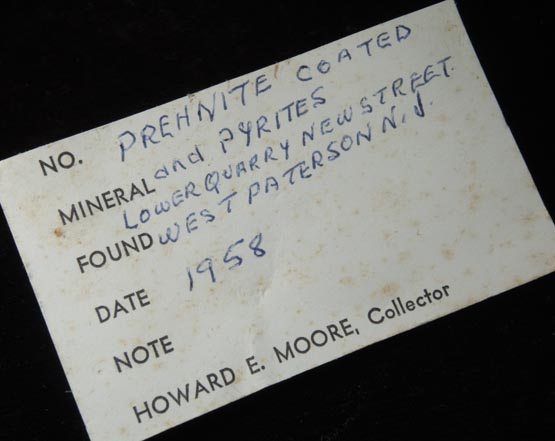 NO. PREHNITE COATED
MINERAL and PYRITES
LOWER QUARRY NEW STREET.
FOUND WEST PATERSON N.J.
DATE 1958
NOTE
HOWARD E. MOORE, Collector